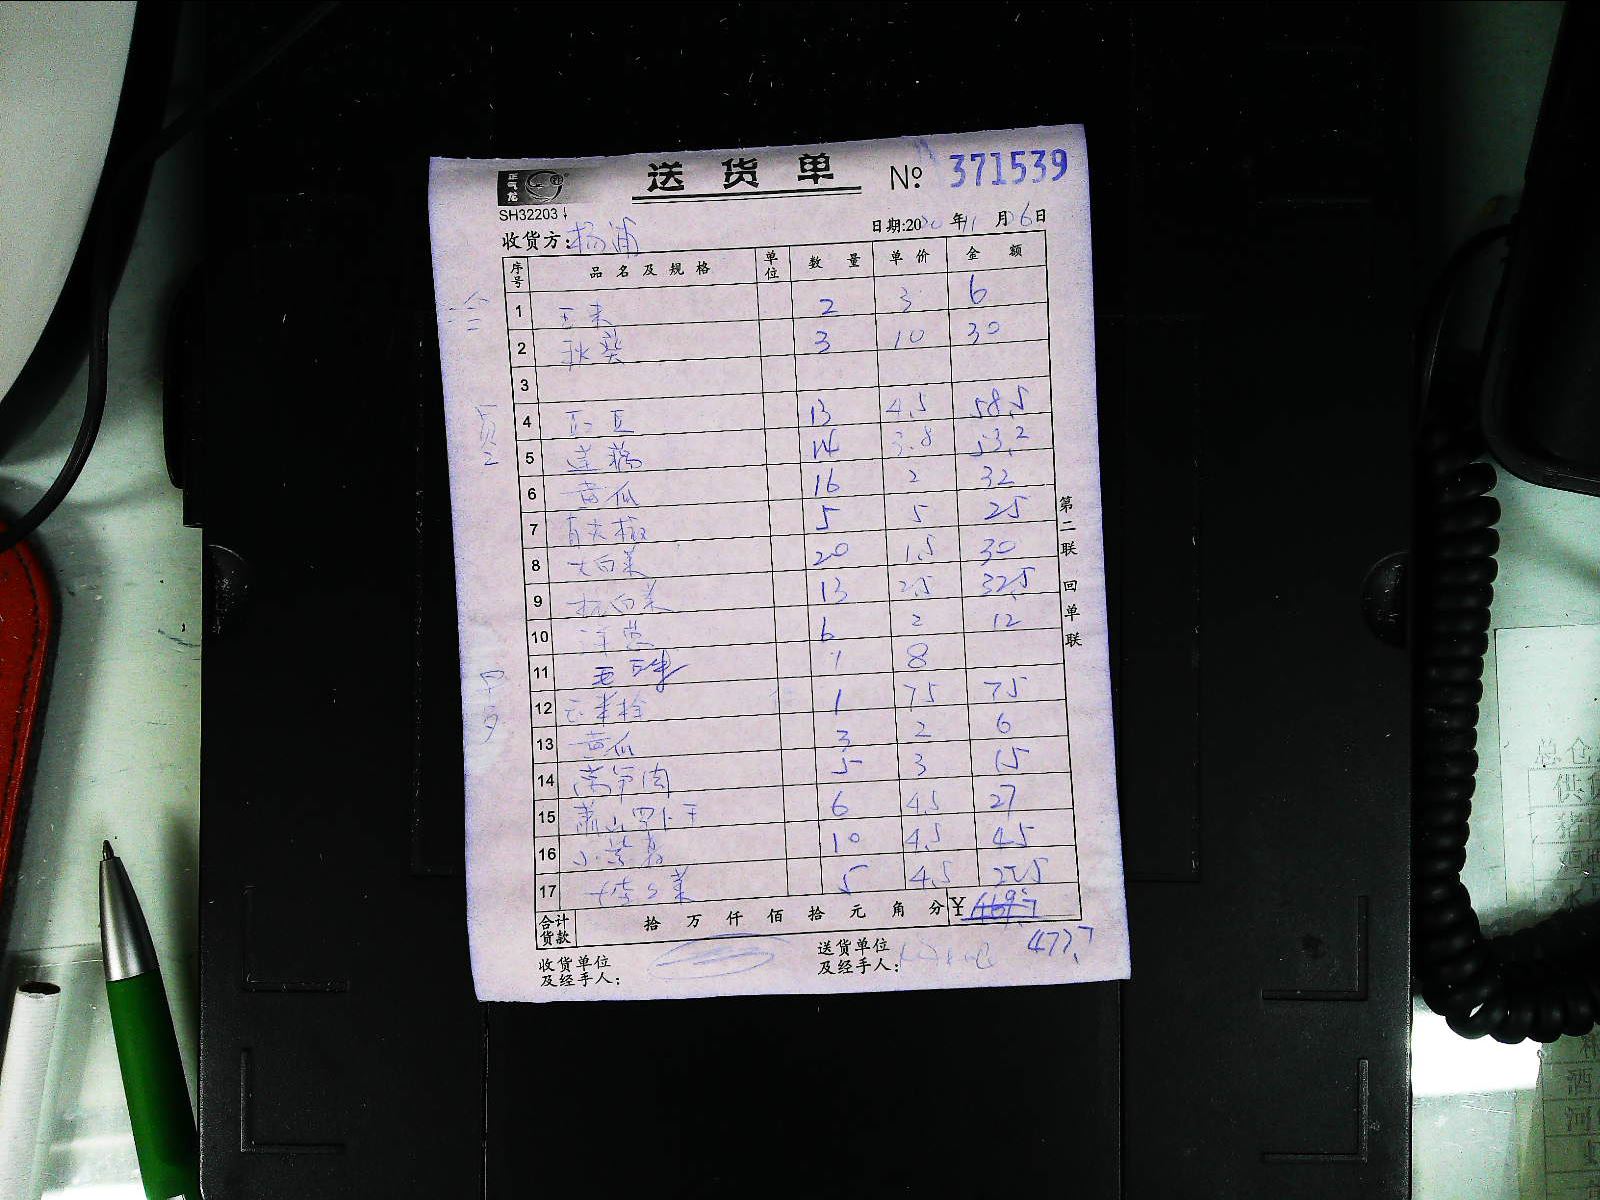 正气龙
送货单 № 371539
SH32203
收货方: 杨浦 日期:2020年11月26日
序号 品名及规格 单位 数量 单价 金额
1 玉米 2 3 6
2 秋葵 3 10 30
3
4 13 4.5 58.5
5 莲藕 14 3.8 53.2
6 黄瓜 16 2 32
7 青尖椒 5 5 25
8 大白菜 20 1.5 30
9 杭白菜 13 2.5 32.5
10 洋葱 6 2 12
11 1 8
12 1 75 75
13 黄瓜 3 2 6
14 莴笋肉 5 3 15
15 萧山罗卜干 6 4.5 27
16 10 4.5 45
17 5 4.5 22.5
合计货款 拾 万 仟 佰 拾 元 角 分 ¥ 469.7
477.7
收货单位及经手人:
送货单位及经手人:
第二联 回单联
早
总仓
供货
猪
鸡
水
酒
河